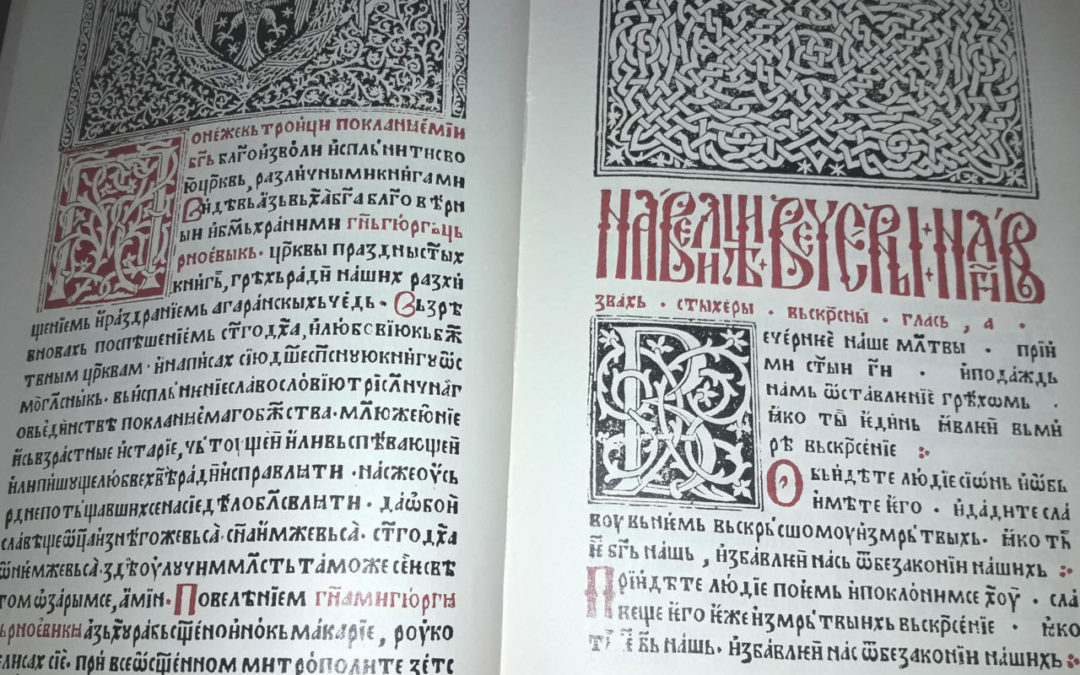 онежекь трⷪ҇ици покланꙗе́мїи
бг҃ь благои҆зво́ли и҆спль́нитисво
ю҆цр҃квь, разли́чнымикни́гами
Ви́дѣвьа҆́зьвьх҃а́бг҃а бл҃гов ѣ́рн
ыи и҆бг҃мьхра́нимни гн҃ьгю́ргьць
рное́выкь · цр҃квы праздныст҃ых
кни́гь, грѣхьра́ди на́ших разхи
щенїемь и҆раздранїемь агара́нскыхьче́дь · Вьзрѣ
вновахь поспѣшенїемь ст҃годх҃а, и҆любовїюкьбж҃
твным цр҃квам · и҆написах сїю҆дш҃есп҃сную҆кни́гу ѡ҆с
могл҃сны́кь · вьи҆спль́нєнїеславословїю трїсл҃нчнаг
овье҆ди́нствѣ покланꙗе́магобж҃ства · мл҃южею҆нїе
и҆сьвьзра́стные и҆ста́рїе, чьтоуще́и и҆ливьспѣва́ющеи
и҆липи́шуще любвех҃вѣра́дии҆справлꙗти · на́сжеоусь
рднепоть щавшихсенасїедѣ́ло бл҃свлꙗти · да́ѡбои
сла́вещеѡц҃аи҆знѣгожевьса̀ · сн҃аи҆мжевьса̀ · ст҃годх҃а
ѡ҆не́мжевьса̀ · здеоу҆лу́чиммл҃сть та́може се́нсвѣ
томѡза́римсе, а҆ми́н · Повелѣнїем гн҃амигю́рги
ьрное́викиа҆зьх҃урабьсщ҃еноино́кь мака́рїе, роуко
писах сїе · при́ всеѡ҆сщ҃енном митропо́лите зе́тс
НАВЕЛИЦѢИ ВЕЧЕРНЫ · НАГИ ВЬ
звахь · стыхеры · вьскр҃сны · глась, а ·
ечерние на́ше мл҃твы · прїи
ми ст҃ыи ги҃ · и҆пода́ждь
намь ѡ҆ставленїе грѣ́хѡмь ·
ꙗко ты̀ и҆е҆ди́нь ꙗвле́и вьми
рѣ вьскр҃се́нїе ·
Обьи́дѣте лю́дїе сїѡ́нь и҆ѡбь
и҆мѣ́те и҆е҆го · и҆дади́те сла́
воу вьне́мь вьскрь́сшомоуи҆змрь́твыхь · ꙗко тъ
е҆ бг҃ь на́шь, и҆зба́влеи на́сь ѿбезако́нїи на́шихь
Прїи́дѣте лю́дїе пое́мь и҆покло́нимсе хо҃у · сла́
веще и҆е҆го и҆е҆же и҆змрь́твыхь вьскр҃се́нїе · ꙗко
тъ е҆ бг҃ь на́шь · и҆зба́влеи на́с ѿбезако́нїи на́шихь